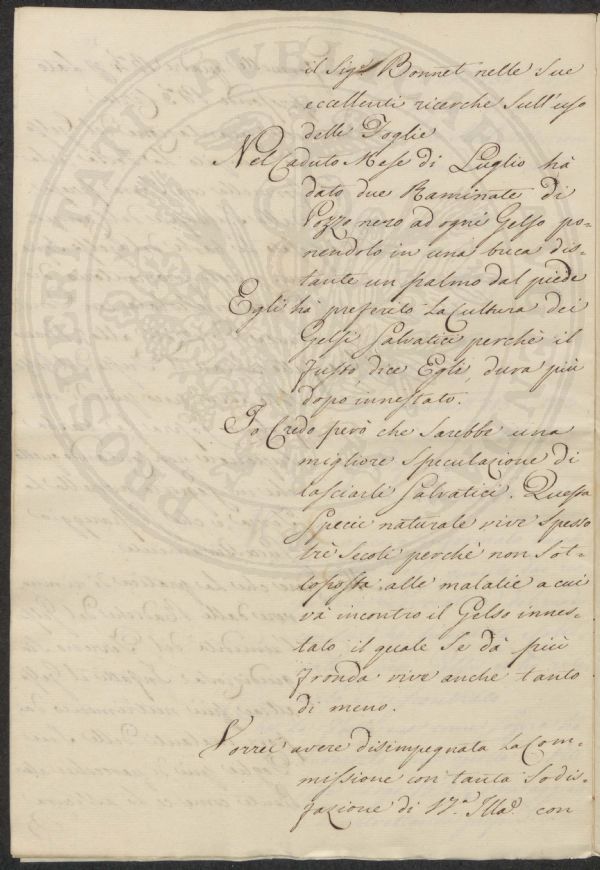 il Sig.r Bonnet nelle sue
eccellenti ricerche sull'uso
delle Foglie
Nel Caduto Mese di Luglio hà
dato due Raminate di
Pozzo nero ad ogni Gelso po=
nendolo in una buca dis=
tante un palmo dal piede
Egli hà preferito la Cultura dei
Gelsi Salvatici perchè il
fusto, dice Egli, dura più
dopo innestato.
Io Credo però che sarebbe una
migliore speculazione di
lasciarli Salvatici. Questa
specie naturale vive spesso
trè Secoli perchè non sot=
toposta alle malatie a cui
và incontro il Gelso innes=
tato il quale se dà più
fronda vive anche tanto
di meno.
Vorrei avere disimpegnata la Com=
missione con tanta sodis=
fazione di V.a Illa. con